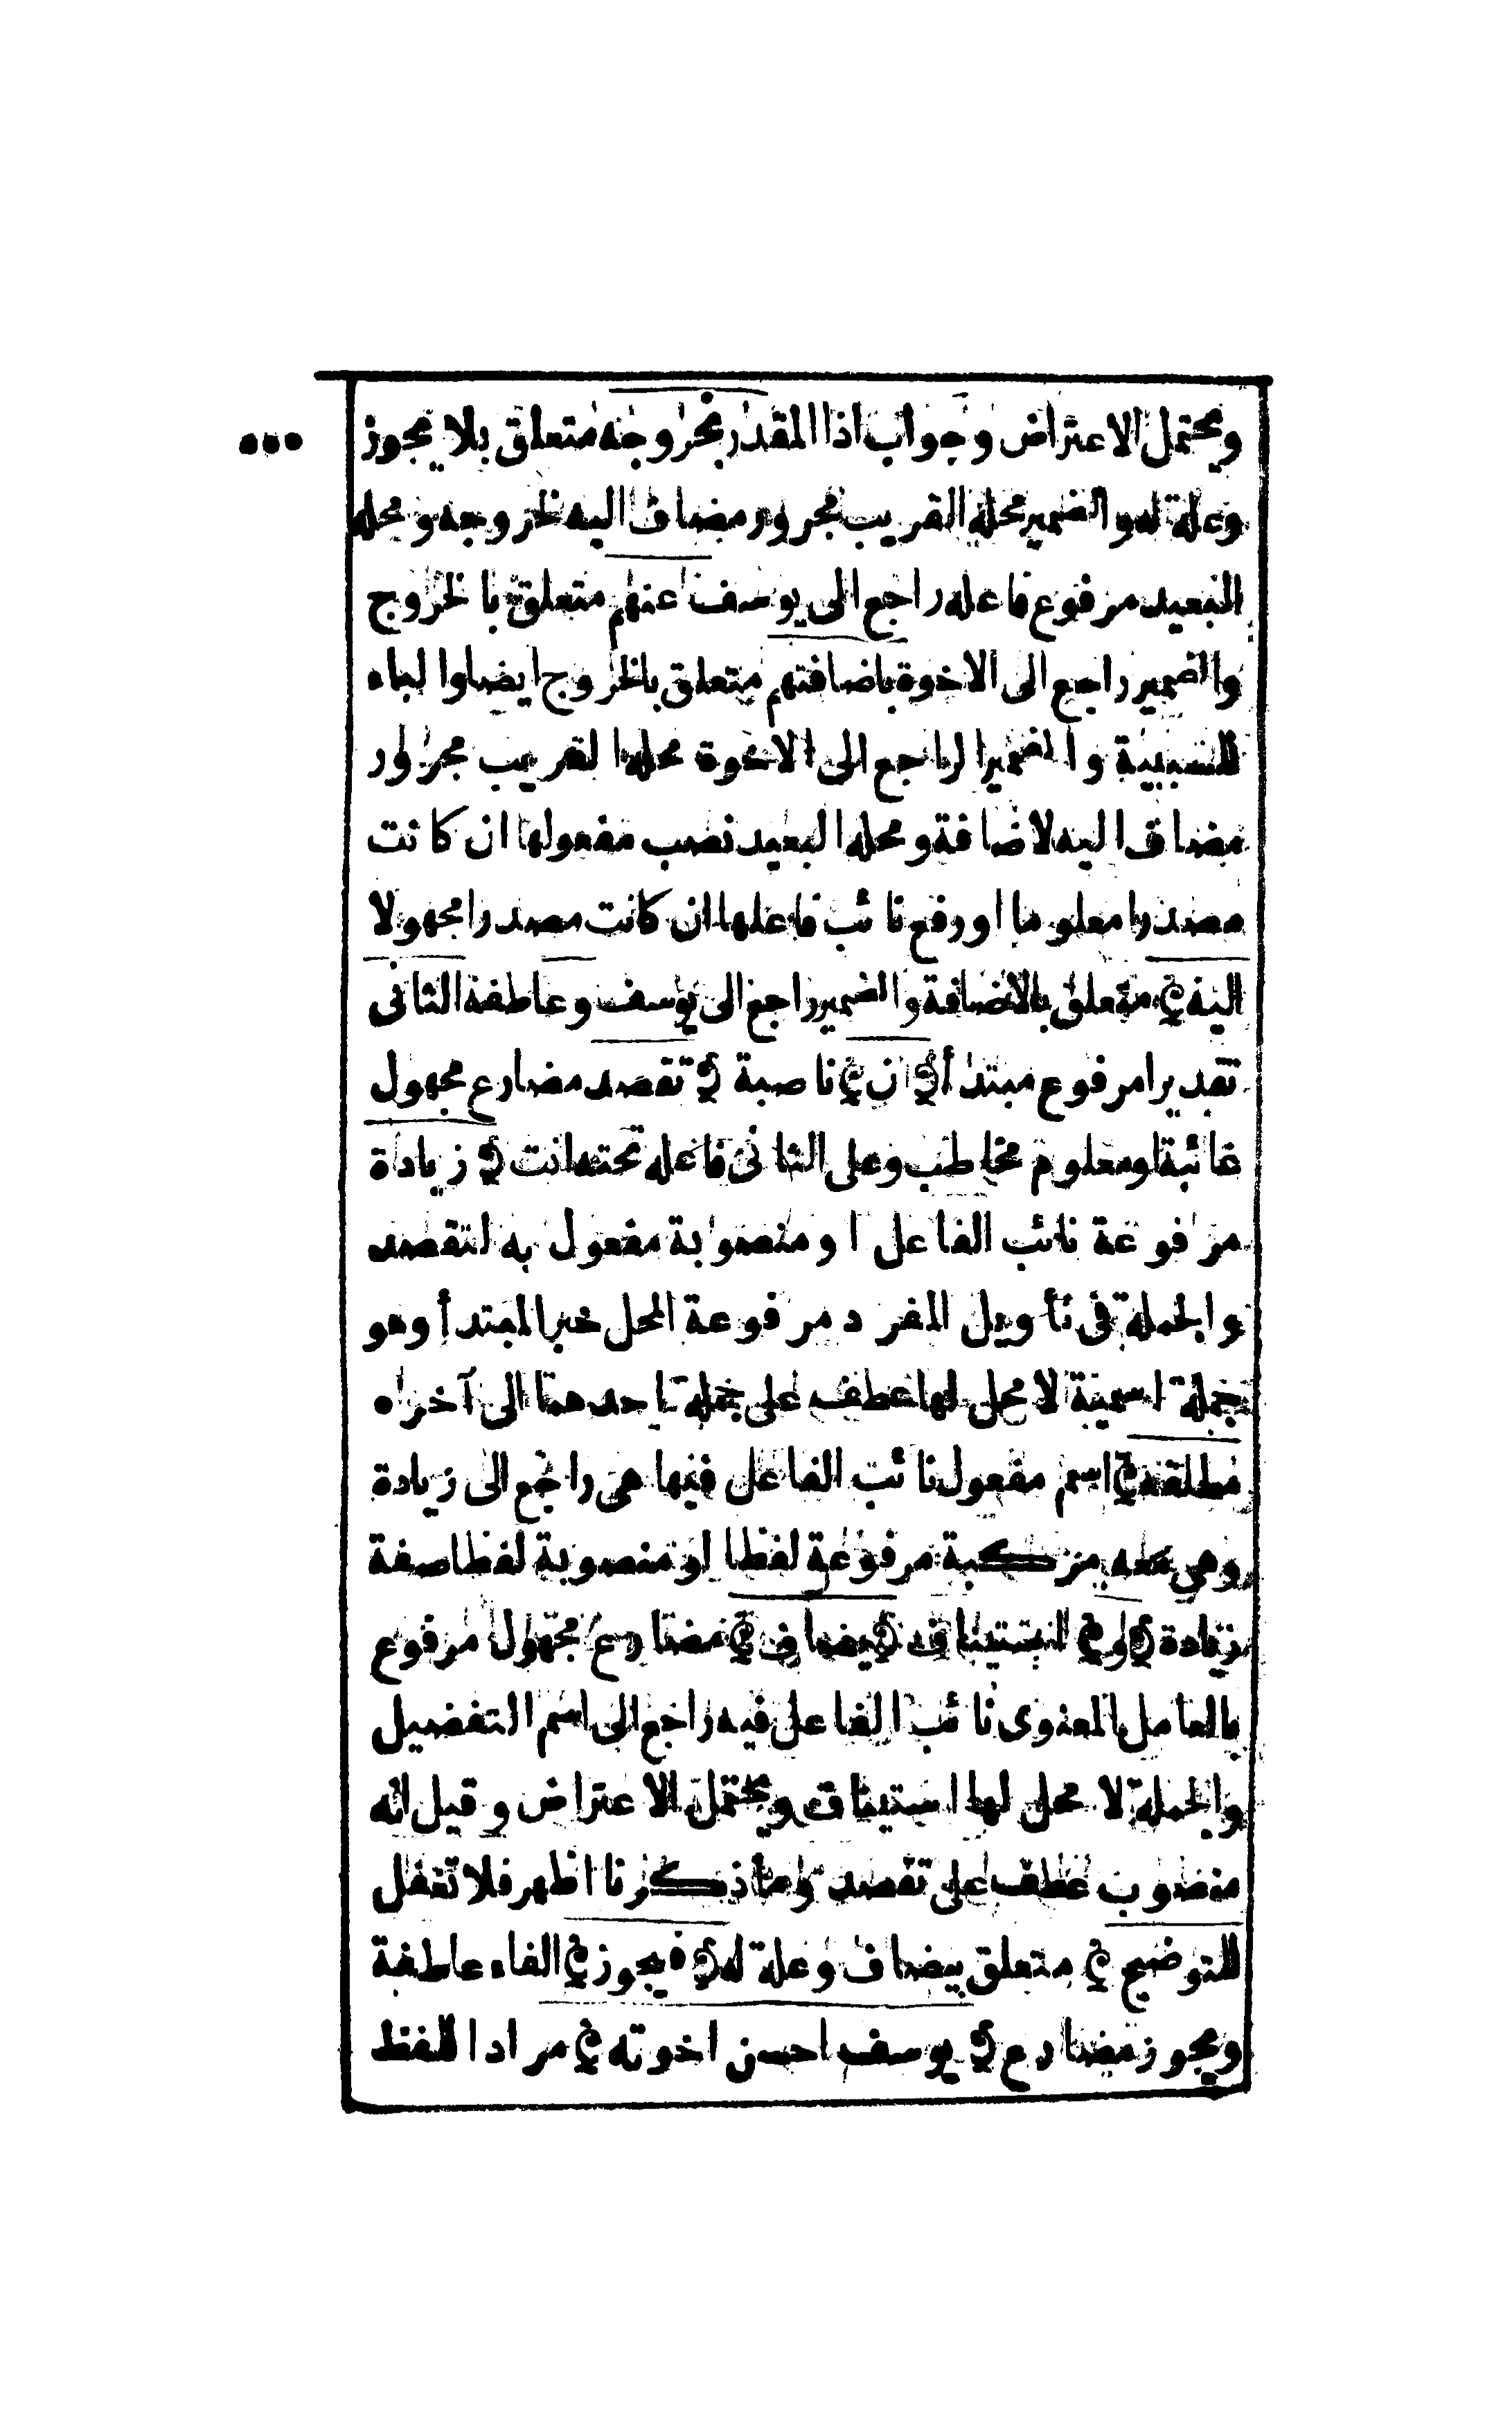 ويحتمل الاعتراض وجواب اذا المقدر لخروجه متعلق بلا يجوز
وعلة له والضمير محله القريب مجرور مضاف اليه لخروجه ومحله
البعيد مرفوع فاعله راجع الى يوسف عنهم متعلق بالخروج
والضمير راجع الى الاخوة باضافتهم متعلق بالخروج ايضا والباء
للسببية والضمير الراجع الى الاخوة محله القريب مجرور
مضاف اليه لاضافة ومحله البعيد نصب مفعولها ان كانت
مصدرا معلوما او رفع نائب فاعلها ان كانت مصدرا مجهولا
اليه متعلق بالاضافة والضمير راجع الى يوسف وعاطفة الثانى
تقديرا مرفوع مبتدأ ان ناصبة تقصد مضارع مجهول
غائبة او معلوم مخاطب وعلى الثانى فاعله تحته انت زيادة
مرفوعة نائب الفاعل او منصوبة مفعول به لتقصد
والجملة فى تأويل المفرد مرفوعة المحل خبر المبتدأ وهو
جملة اسمية لا محل لها عطف على جملة احدهما الى آخره
مطلقة اسم مفعول نائب الفاعل فيها هى راجع الى زيادة
وهى معه مركبة مرفوعة لفظا او منصوبة لفظا صفة
زيادة و استيناف يضاف مضارع مجهول مرفوع
بالعامل المعنوى نائب الفاعل فيه راجع الى اسم التفضيل
والجملة لا محل لها استيناف ويحتمل الاعتراض وقيل انه
منصوب عطف على تقصد وما ذكرنا اظهر فلا تغفل
للتوضيح متعلق بيضاف وعلة له فيجوز الفاء عاطفة
ويجوز مضارع يوسف احسن اخوته مراد اللفظ